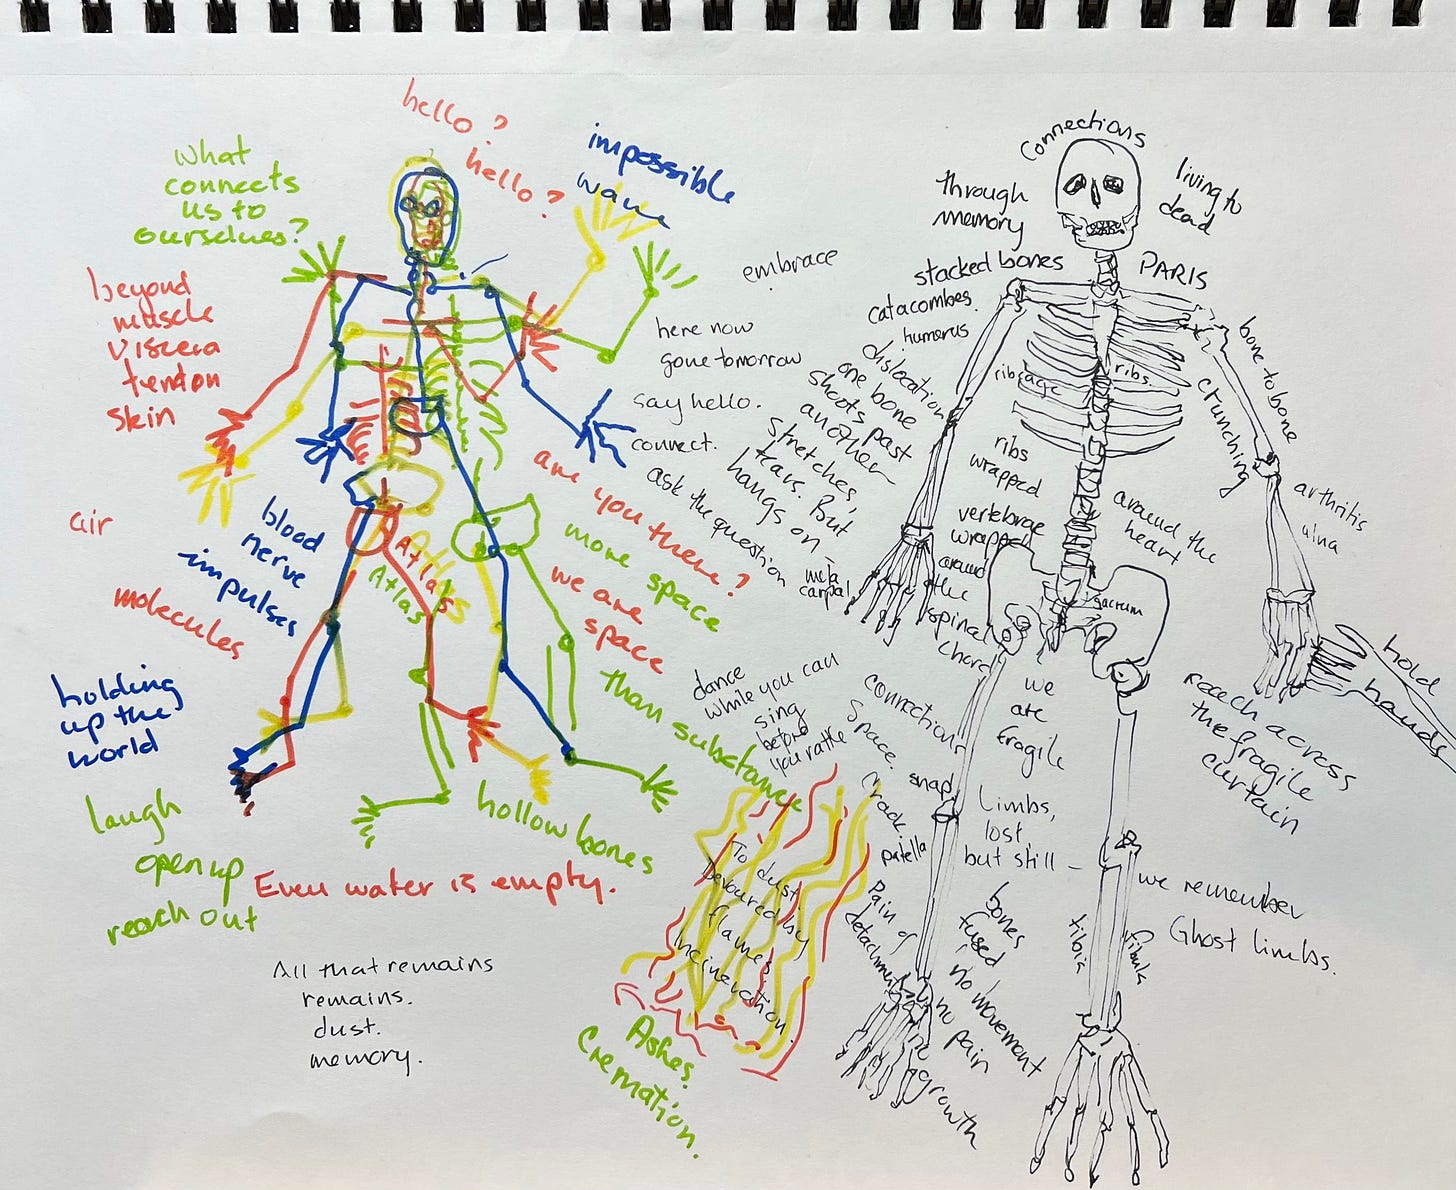 hello?
hello?
impossible
wave
What
connects
us to
ourselves?
beyond
muscle
viscera
tendon
skin
air
blood
nerve
impulses
molecules
holding
up the
world
laugh
open up
reach out
Atlas
Atlas
Atlas
are you there?
we are
space
more space
than substance
hollow bones
Even water is empty.
All that remains
remains.
dust.
memory.
embrace
here now
gone tomorrow
say hello.
connect.
ask the question
dance
while you can
sing
before
you rattle
To dust.
Devoured by
flames.
Incineration.
Ashes.
Cremation.
Connections
through
memory
living to
dead
stacked bones
PARIS
catacombes.
humerus
dislocation
one bone
shoots past
another
stretches,
tears. But
hangs on –
meta
carpal
rib cage
ribs.
bone to bone
crunching
ribs
wrapped
around the
heart
vertebrae
wrapped
around
the
spinal
chord
arthritis
ulna
sacrum
hold
hands
reach across
the fragile
curtain
we
are
fragile
connections
Space.
snap
crack.
patella
Limbs,
lost,
but still –
we remember
Ghost limbs.
Pain of
detachment
bones
fused
no movement
no pain
no
growth
tibia
fibula